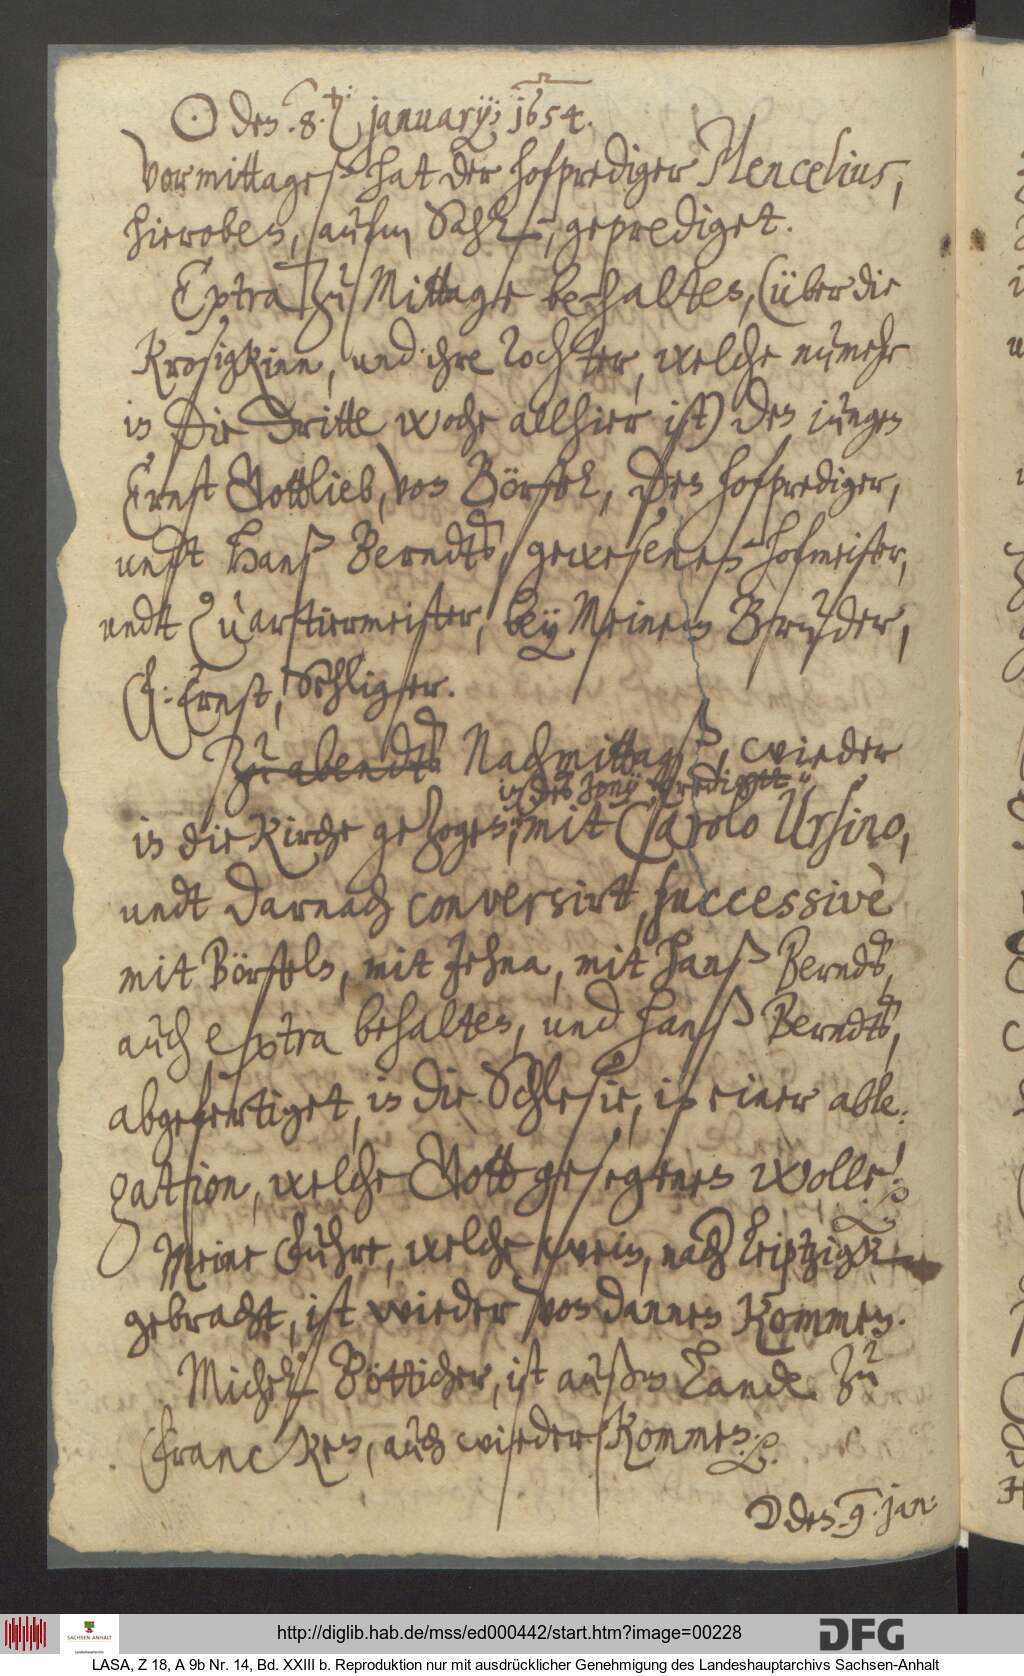 ☉ den .8. t: january; 1654.
Vormittages hat der hofprediger Mencelius,
hieroben, aufm Sahl, geprediget.
Extra zu Mittage behalten, (über die
Krosigkinn, und ihre Tochter, welche nunmehr
in die dritte woche allhier ist) den iungen
Ernst Gottlieb, von Börstel, den hofprediger,
undt Hanß Berndt, gewesenen hofmeister,
undt Quartiermeister, bey Meinem Bruder,
F: Ernst, Sehliger.
Zu abendts Nachmittagß, wieder
in des Jonij Predigtt
in die Kirche gezogen, mit Carolo Ursino,
undt darnach conversirt, successivè
mit Börsteln, mit Jehna, mit Hanß Berndt,
auch extra behalten, und Hanß Berndten,
abgefertiget, in die Schlesie, in einer able:
gation, welche Gott gesegenen wolle!
Meine Fuhre, welche wein, nach Leiptzigk
gebracht, ist wieder von dannen kommen.
Michel Bötticher, ist außm Lande zu
Francken, auch wieder kommen.
☽ den .9. jan:
http://diglib.hab.de/mss/ed000442/start.htm?image=00228
SACHSEN-ANHALT
DFG
LASA, Z 18, A 9b Nr. 14, Bd. XXIII b. Reproduktion nur mit ausdrücklicher Genehmigung des Landeshauptarchivs Sachsen-Anhalt